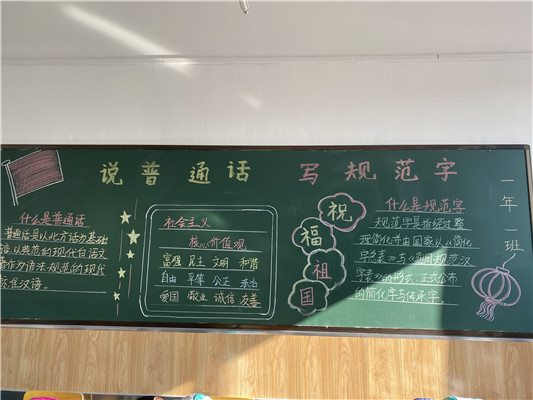 说普通话 写规范字
一年一班
什么是普通话
普通话是以北方话为基础
方言,以典范的现代白话文
著作为语法规范的现代
标准汉语。
社会主义
核心价值观
富强 民主 文明 和谐
自由 平等 公正 法治
爱国 敬业 诚信 友善
祝
福
祖
国
什么是规范字
规范字是指经过整
理简化并由国家以《简化
字总表》与《通用规范汉
字表》的形式,正式公布
的简化字与传承字。